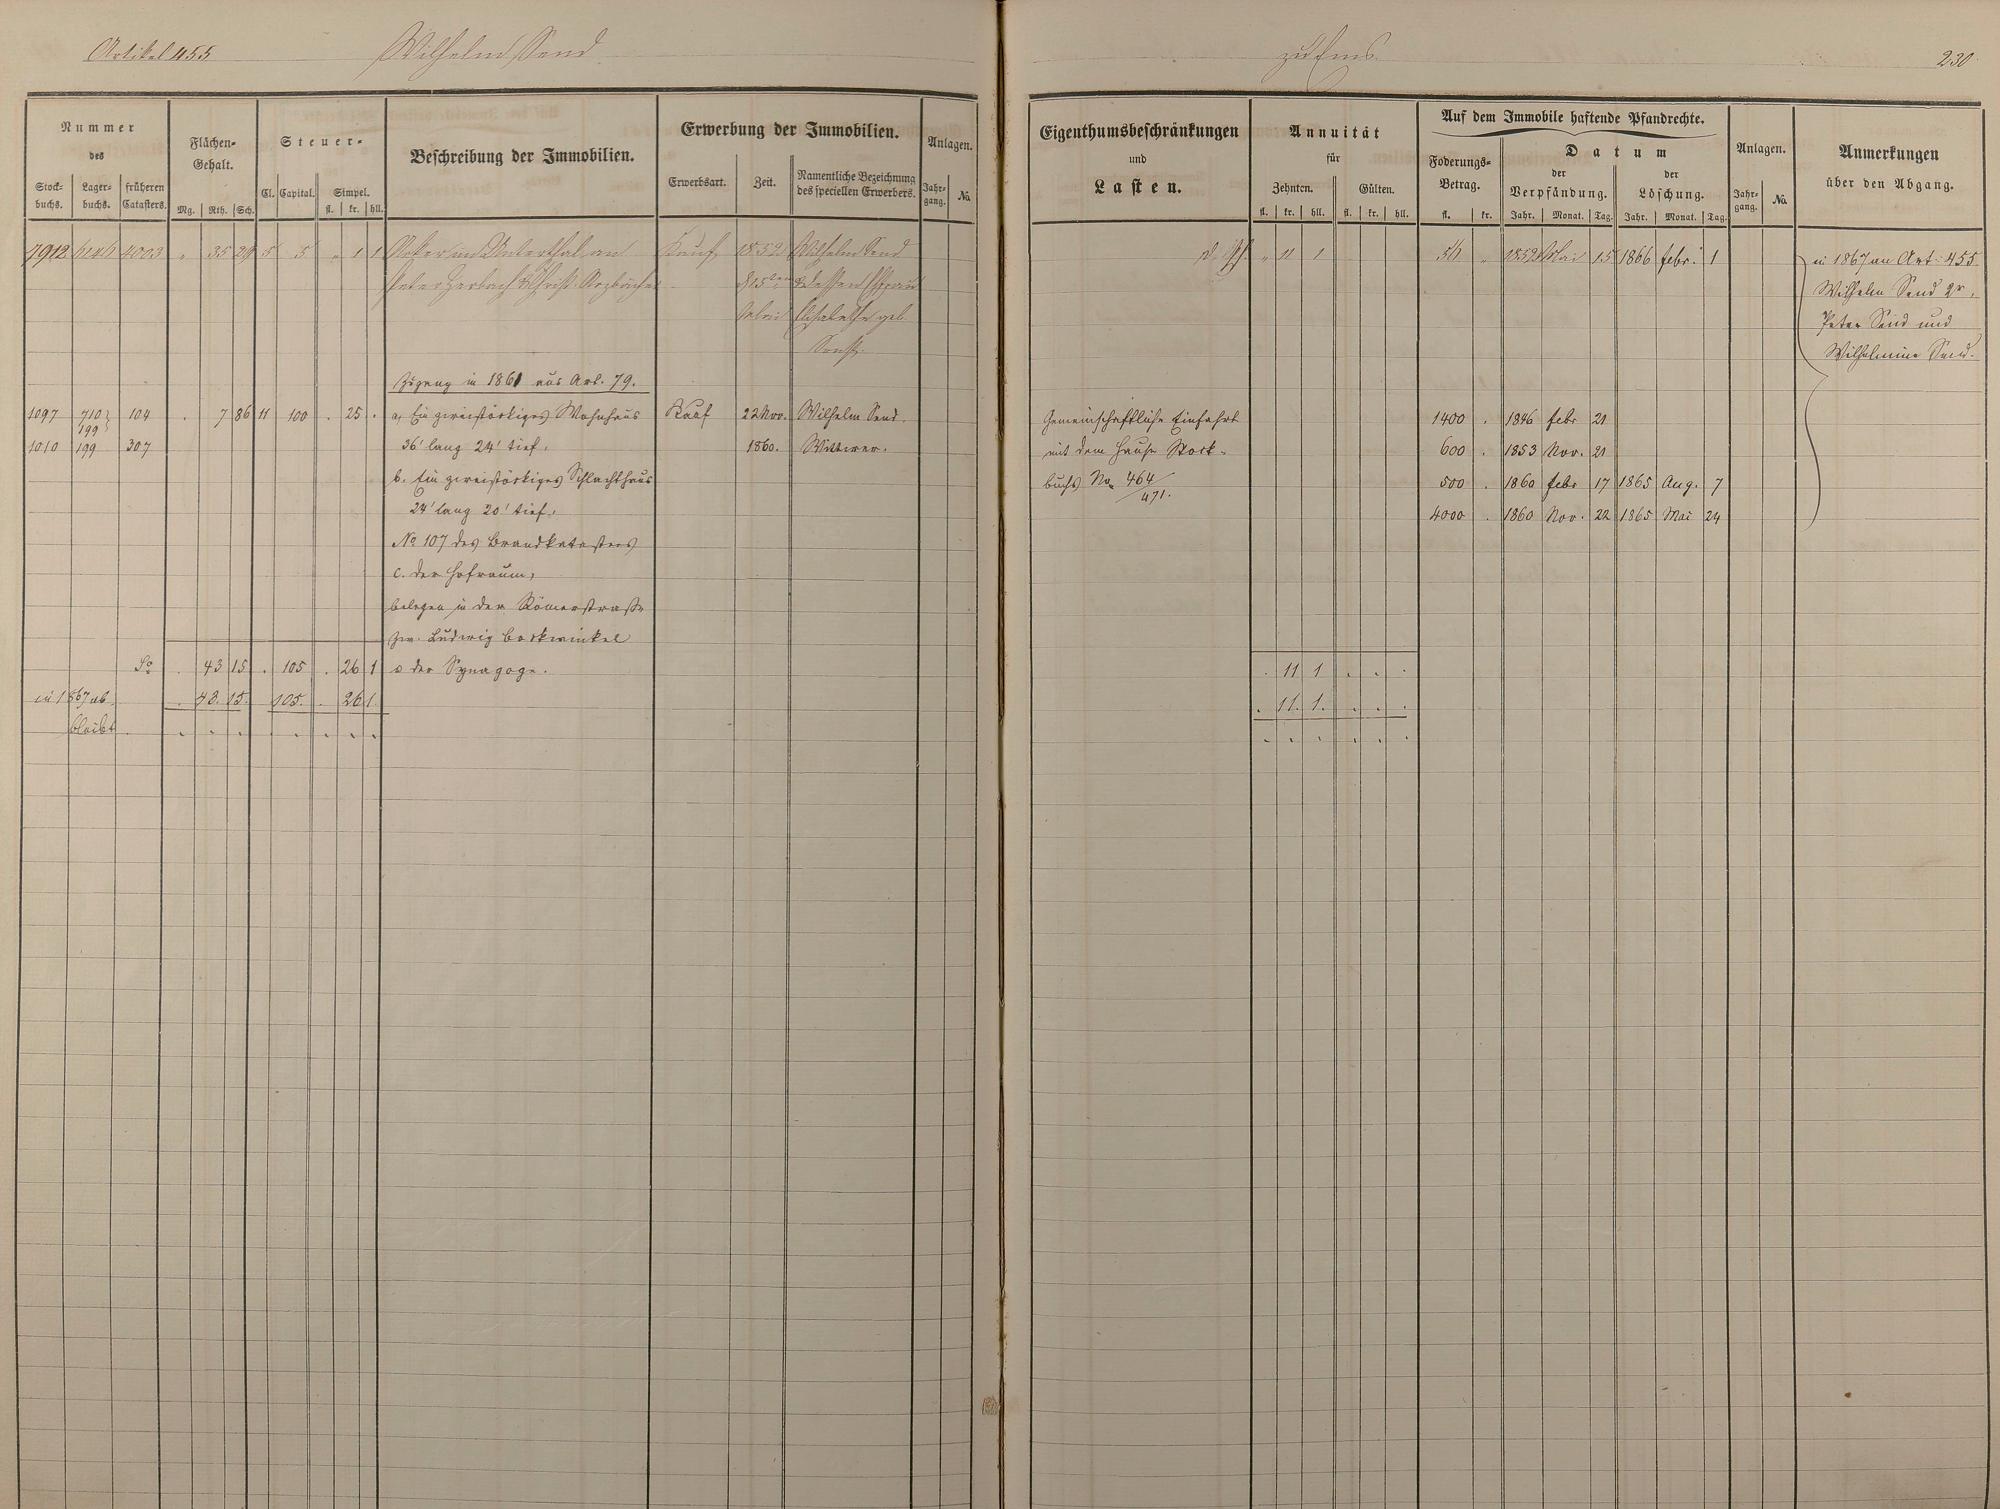 Artikel 455 Wilhelm Send zu Ems. 230
Nummer
des
Stock-
buchs.
Lager-
buchs.
früheren
Catasters.
Flächen-
Gehalt.
Mg. Rth. Sch.
Steuer-
Cl. Capital. Simpel.
fl. kr. hll.
Beschreibung der Immobilien.
Erwerbung der Immobilien.
Erwerbsart. Zeit.
Namentliche Bezeichnung
des speciellen Erwerbers.
Anlagen.
Jahr-
gang.
No.
Eigenthumsbeschränkungen
und
Lasten.
Annuität
für
Zehnten. Gülten.
fl. kr. hll. fl. kr. hll.
Auf dem Immobile haftende Pfandrechte.
Foderungs-
Betrag.
fl. kr.
Datum
der
Verpfändung.
Jahr. Monat. Tag.
der
Löschung.
Jahr. Monat. Tag.
Anlagen.
Jahr-
gang.
No.
Anmerkungen
über den Abgang.
7912 4003 " 35 29 5 5 " 1 1 Acker im Unterthal an Kauf 1852 Wilhelm Send
Peter Herbach & Christ. Arzbächer & dessen Ehefrau
Elisabethe geb.
" 11 1 " 1852 Mai 15 1866 febr. 1
in 1867 an Art. 455
Wilhelm Send 2r,
Peter Send und
Wilhelmine Send.
Zugang in 1861 aus Art. 79.
1097 710 199 104 . 7 86 11 100 . 25 . a, Ein zweistöckiges Wohnhaus Kauf 22 Nov. Wilhelm Send.
1010 199 307 36' lang 24' tief, 1860. Wittwer.
b. Ein zweistöckiges Schlachthaus
24' lang 20' tief,
No 107 des Brandkatasters
c. der Hofraum,
belegen in der Römerstraße
zw. Ludwig Borkwinkel
& der Synagoge.
Gemeinschaftliche Einfahrt
mit dem Hause Stock-
buchs No. 464/471.
1400 . 1846 febr 21
600 . 1853 Nov. 21
500 . 1860 febr 17 1865 Aug. 7
4000 . 1860 Nov. 22 1865 Mai 24
Sa . 43 15 . 105 . 26 1
. 11 1 . . .
in 1867 ab . 43. 15. 105. . 26 1.
. 11. 1. . . .
bleibt . . . . . . . .
. . . . . .